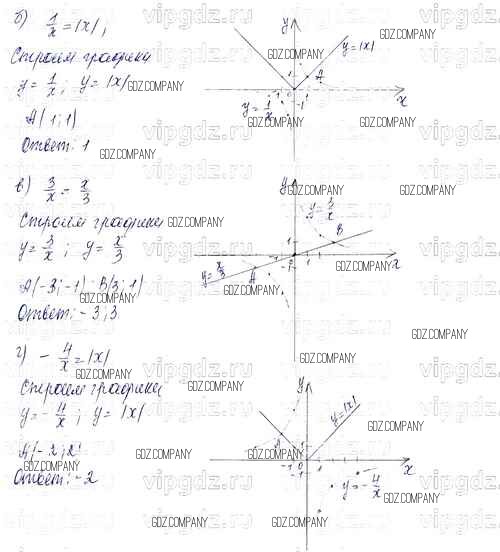 б) 1/x = |x|,
Строим графики
y = 1/x; y = |x|
A(1; 1)
Ответ: 1
y
y=|x|
A
1
-1
0
1
-1
x
y = 1/x
в) 3/x = x/3
Строим графики
y = 3/x; y = x/3
A(-3; -1) B(3; 1)
Ответ: -3; 3
y
y = 3/x
B
1
-1
x
y = x/3
A
г) - 4/x = |x|
Строим графики
y = - 4/x; y = |x|
A(-2; 2)
Ответ: -2
y
y=|x|
A
1
-1
-1
1
x
y = - 4/x
GDZ.COMPANY
vipgdz.ru